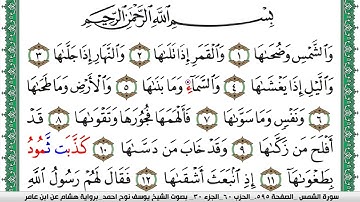 بِسْمِ اللَّهِ الرَّحْمَٰنِ الرَّحِيمِ
وَالشَّمْسِ وَضُحَىٰهَا ١ وَالْقَمَرِ إِذَا تَلَىٰهَا ٢ وَالنَّهَارِ إِذَا جَلَّىٰهَا ٣
وَاللَّيْلِ إِذَا يَغْشَىٰهَا ٤ وَالسَّمَآءِ وَمَا بَنَىٰهَا ٥ وَالْأَرْضِ وَمَا طَحَىٰهَا
٦ وَنَفْسٍ وَمَا سَوَّىٰهَا ٧ فَأَلْهَمَهَا فُجُورَهَا وَتَقْوَىٰهَا ٨ قَدْ
أَفْلَحَ مَن زَكَّىٰهَا ٩ وَقَدْ خَابَ مَن دَسَّىٰهَا ١٠ كَذَّبَت ثَّمُودُ
بِطَغْوَىٰهَا ١١ إِذِ انۢبَعَثَ أَشْقَىٰهَا ١٢ فَقَالَ لَهُمْ رَسُولُ اللَّهِ
سورة الشمس الصفحة ٥٩٥، الحزب ٦٠، الجزء ٣٠، بصوت الشيخ يوسف نوح احمد برواية هشام عن ابن عامر